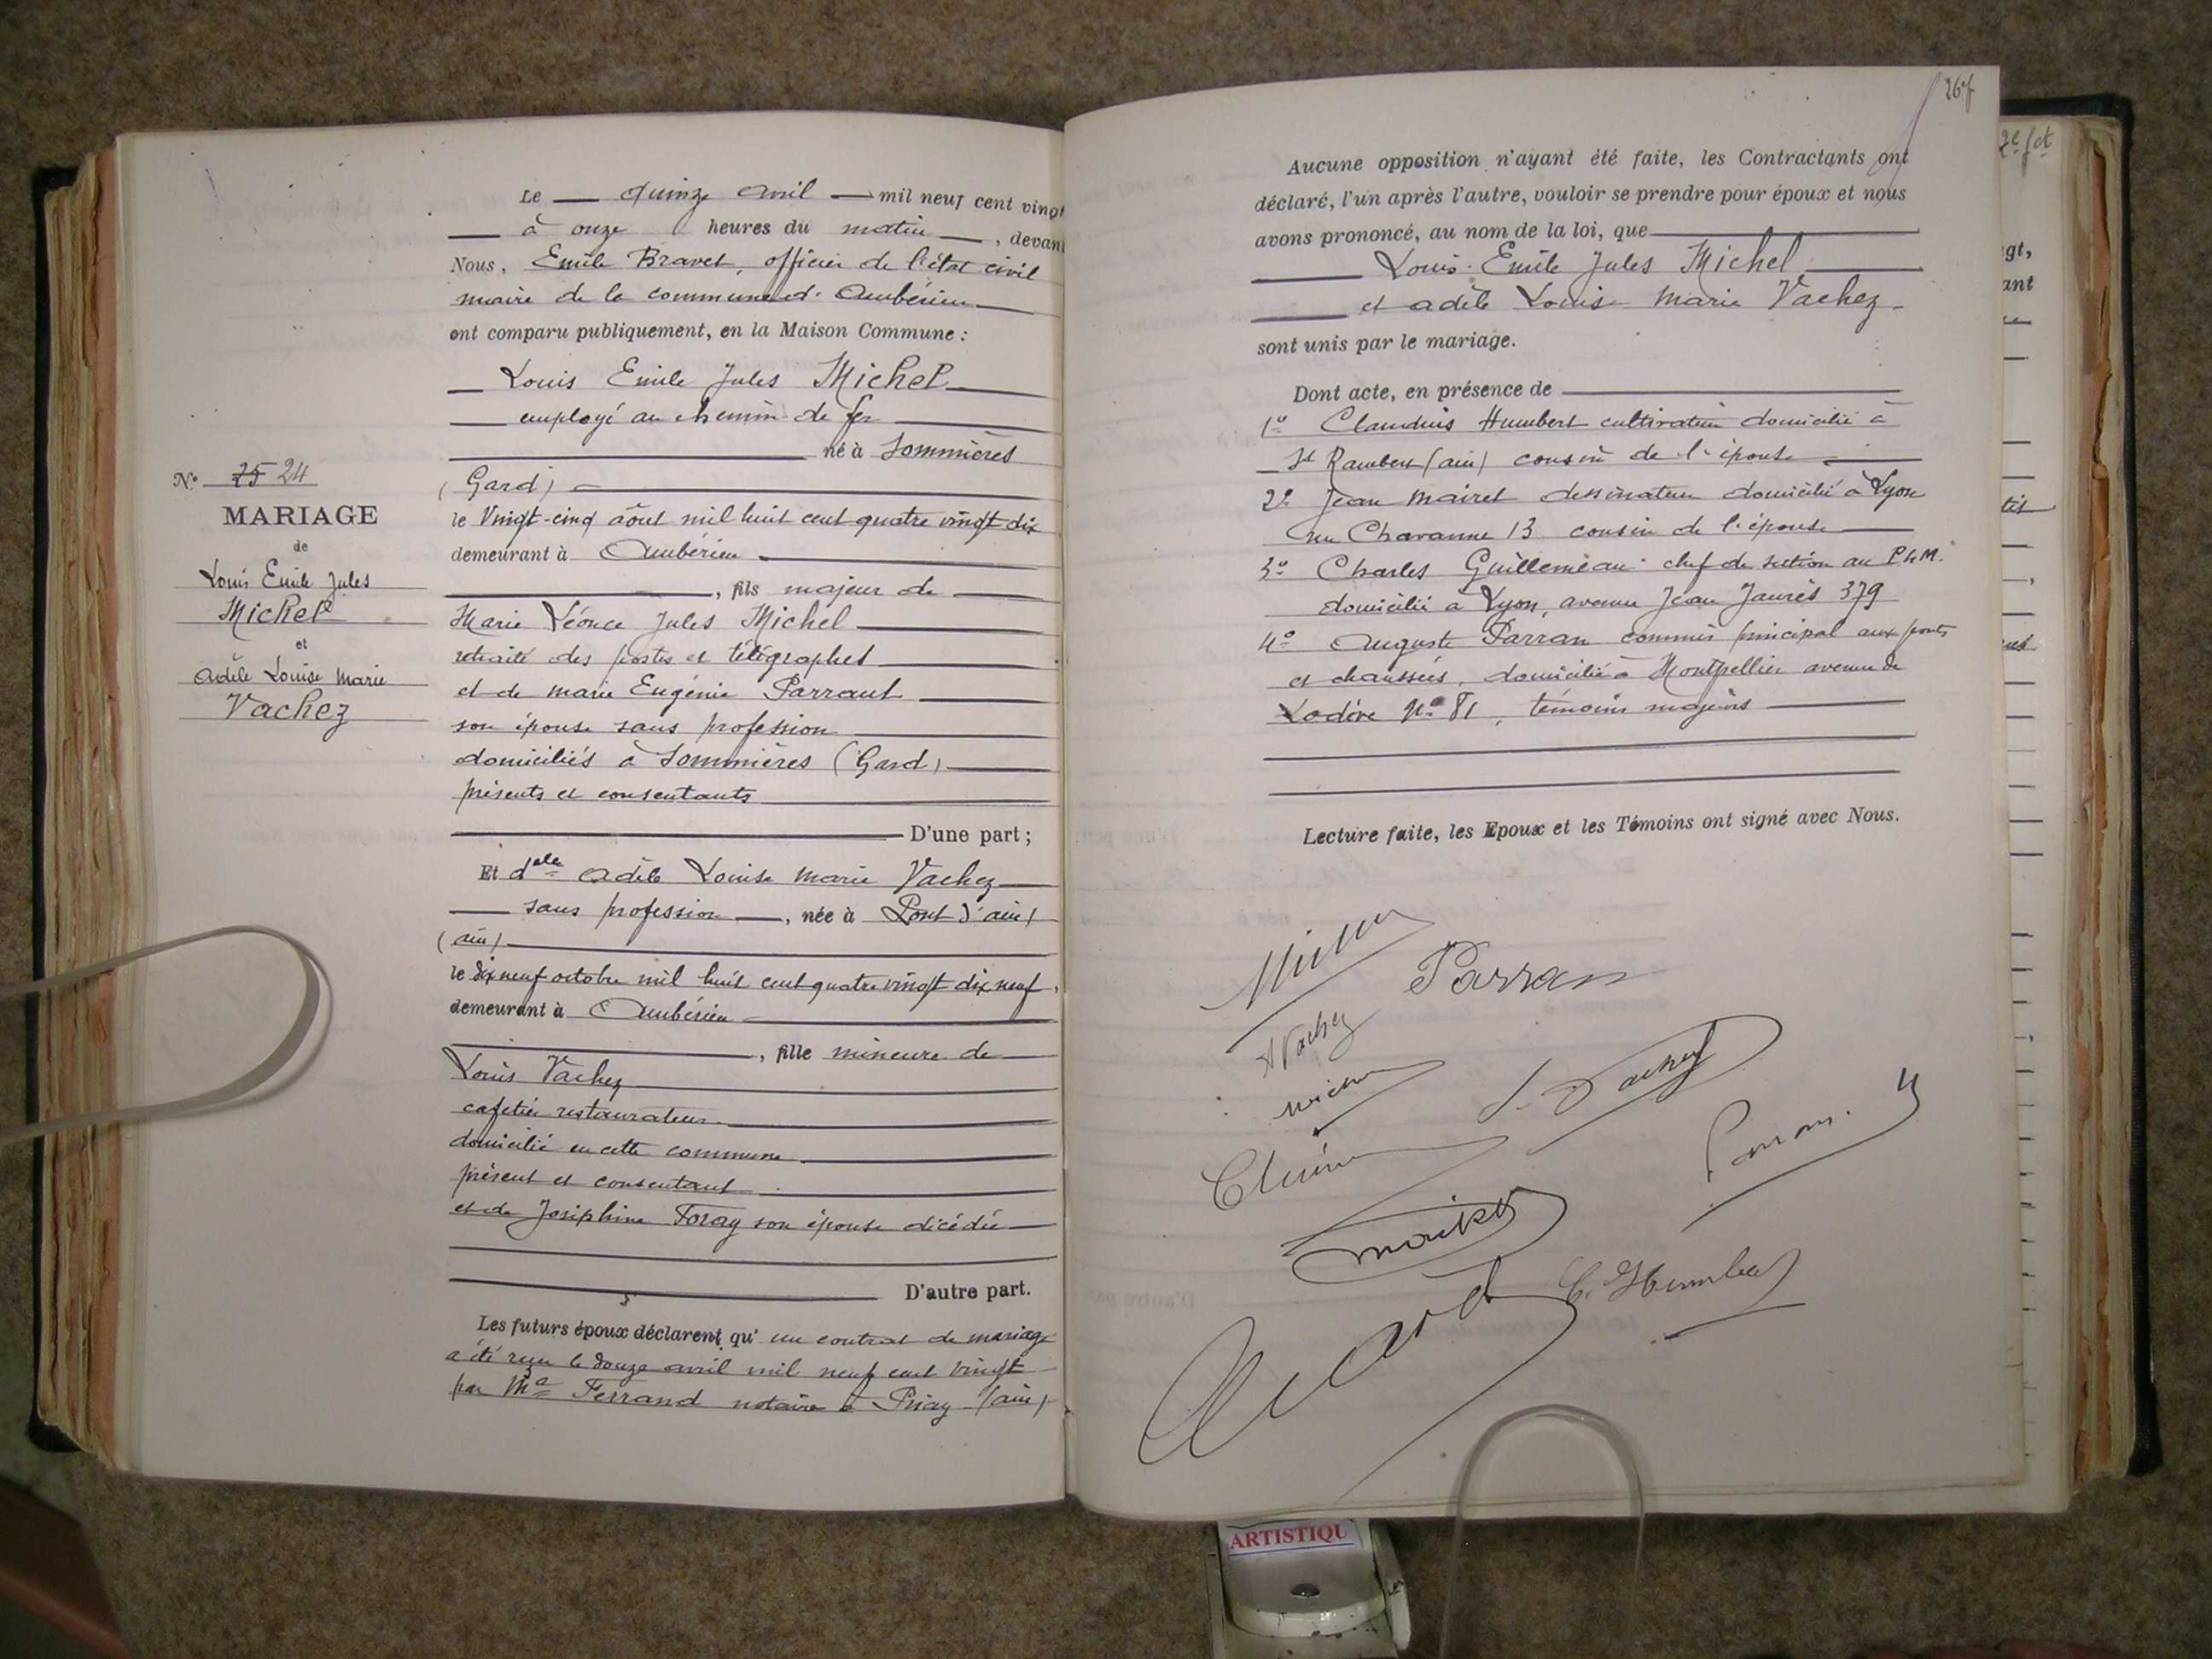 Le quinze avril mil neuf cent vingt
à onze heures du matin, devant
Nous, Emile Bravet, officier de l'état civil
maire de la commune d'Ambérieu
ont comparu publiquement, en la Maison Commune :
Louis Emile Jules Michel
employé au chemin de fer
né à Sommières
(Gard)
le Vingt-cinq août mil huit cent quatre vingt dix
demeurant à Ambérieu
, fils majeur de
Marie Léonce Jules Michel
retraité des postes et télégraphes
et de marie Eugénie Parrant
son épouse sans profession
domiciliés à Sommières (Gard)
présents et consentants
D'une part ;
N° 25 24
MARIAGE
de
Louis Emile Jules
Michel
et
Adèle Louise Marie
Vachez
Et delle Adèle Louise Marie Vachez
sans profession, née à Pont d'ain
(ain)
le dix neuf octobre mil huit cent quatre vingt dix neuf,
demeurant à Ambérieu
, fille mineure de
Louis Vachez
cafetier restaurateur
domicilié en cette commune
présent et consentant
et de Joséphine Foray son épouse décédée
D'autre part.
Les futurs époux déclarent qu'un contrat de mariage
a été reçu le douze avril mil neuf cent vingt
par Me Ferrand notaire à Priay (ain)
26 f
Aucune opposition n'ayant été faite, les Contractants ont
déclaré, l'un après l'autre, vouloir se prendre pour époux et nous
avons prononcé, au nom de la loi, que
Louis Emile Jules Michel
et adèle Louise Marie Vachez
sont unis par le mariage.
Dont acte, en présence de
1° Claudius Humbert cultivateur domicilié à
St Rambert (ain) cousin de l'épouse
2° Jean Mairet dessinateur domicilié à Lyon
rue Chavanne 13 cousin de l'épouse
3° Charles Guillemeau chef de section au P.L.M.
domicilié à Lyon, avenue Jean Jaurès 379
4° Auguste Parran commis principal aux ponts
et chaussées, domicilié à Montpellier avenue de
Lodève N° 81, témoins majeurs
Lecture faite, les Epoux et les Témoins ont signé avec Nous.
Parran
A Vachez
L. Vachez
Mairet
C. Humbert
ARTISTIQU